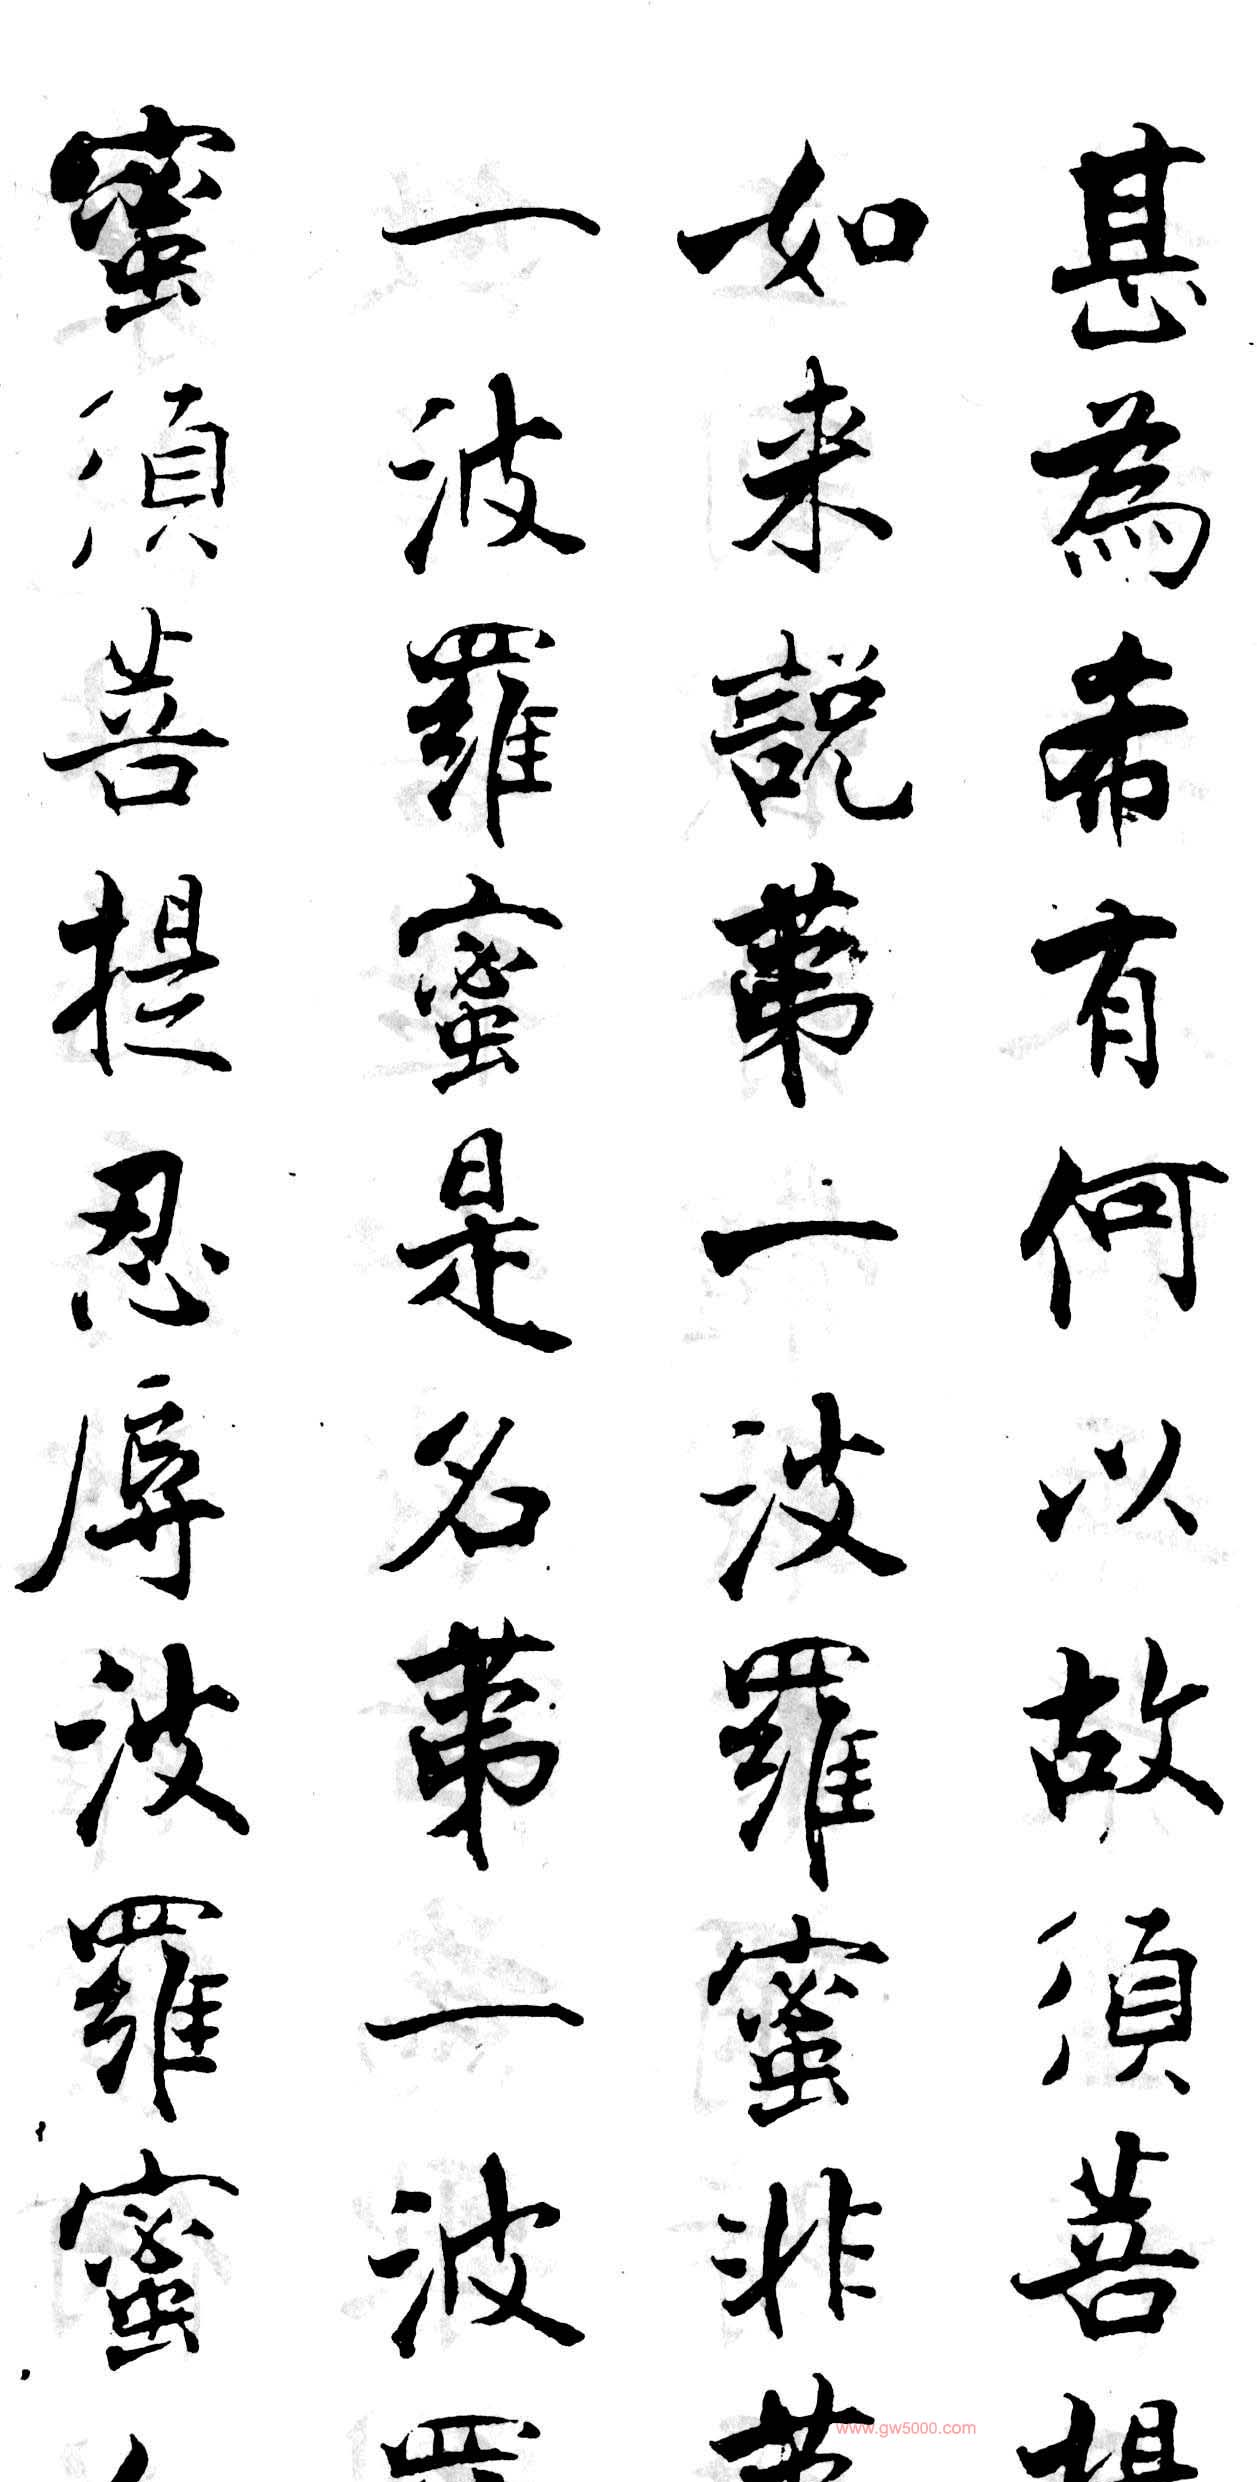 甚為希有何以故須菩提
如来說苐一波羅蜜非苐
一波羅蜜是名苐一波羅
蜜須菩提忍辱波羅蜜
www.gw5000.com